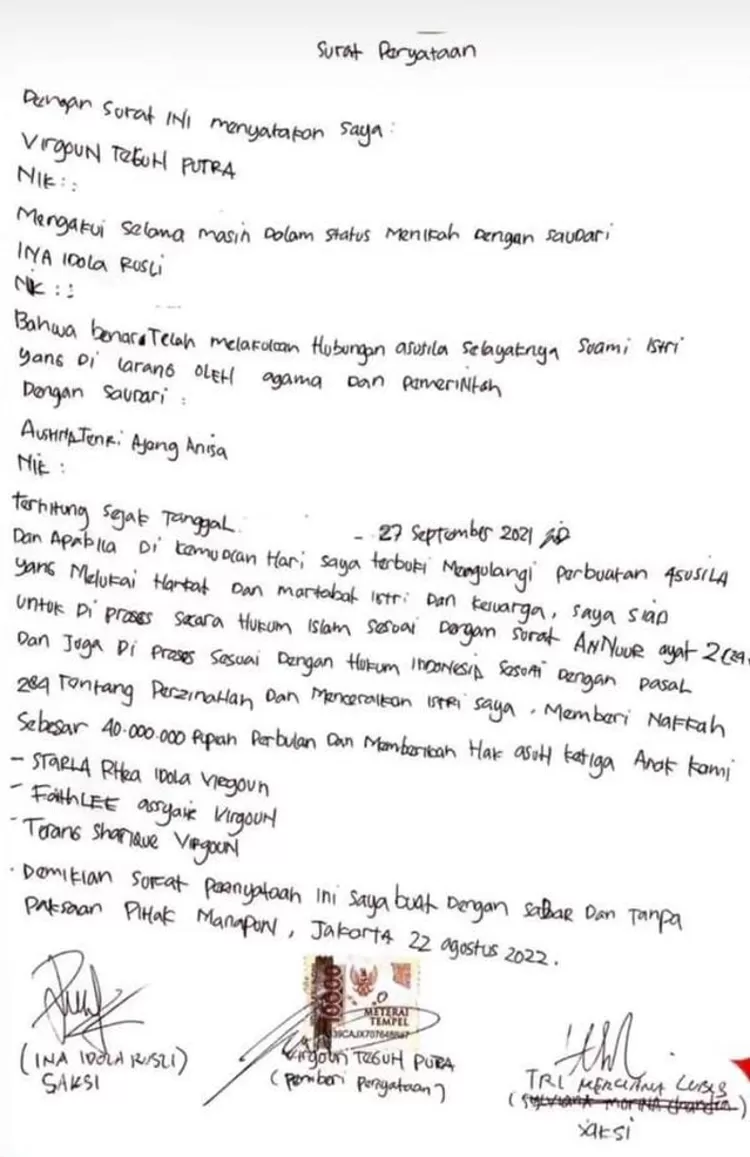 Surat Peryataan
Dengan Surat INI menyatakan saya :
VIRGOUN TEGUH PUTRA
NIK : :
Mengakui selama masih Dalam status Menikah Dengan saudari
INA IDola RUSLi
NIK : :
Bahwa benar Telah melakukan Hubungan asusila selayaknya Suami istri
yang Di larang OLEH agama Dan pemerintah
Dengan Saudari :
Tenri Ajeng Anisa
Nik :
Terhitung Sejak Tanggal - 27 September 2021
Dan Apabila Di kemudian Hari saya terbukti Mengulangi perbuatan ASUSILA
yang Melukai Harkat Dan martabat istri Dan keluarga, saya siap
untuk Di proses secara Hukum Islam sesuai Dengan surat ANNUUR ayat 2
Dan Juga Di Proses Sesuai Dengan Hukum INDONESIA sesuai Dengan pasal
284 Tentang Perzinahan Dan Menceraikan istri saya, Memberi Nafkah
Sebesar 40.000.000 Rupiah Perbulan Dan Memberikan Hak asuh ketiga Anak kami
- STARLA RHea IDOLA VIRGOUN
- FaithLEE VIRGOUN
- Terans Sharique VIRGOUN
. Demikian Surat pernyataan ini saya buat Dengan sadar Dan Tanpa
paksaan PIHak Manapun, Jakarta 22 agustus 2022.
10000
METERAI
TEMPEL
(INA IDOLA RUSLI)
SAKSI
Virgoun TEGUH PUTRA
(pemberi peryataan)
TRI LUBIS
SAKSI